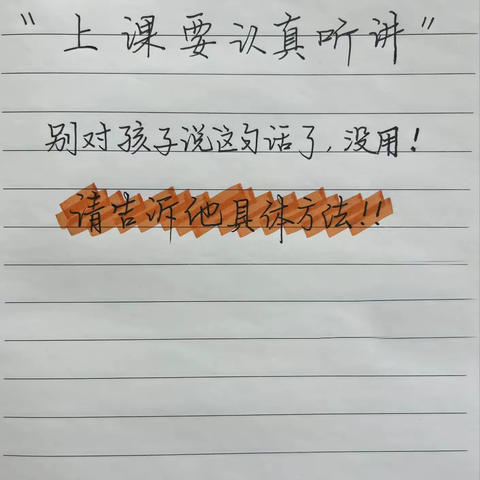 "上课要认真听讲"
别对孩子说这句话了,没用!
请告诉他具体方法!!